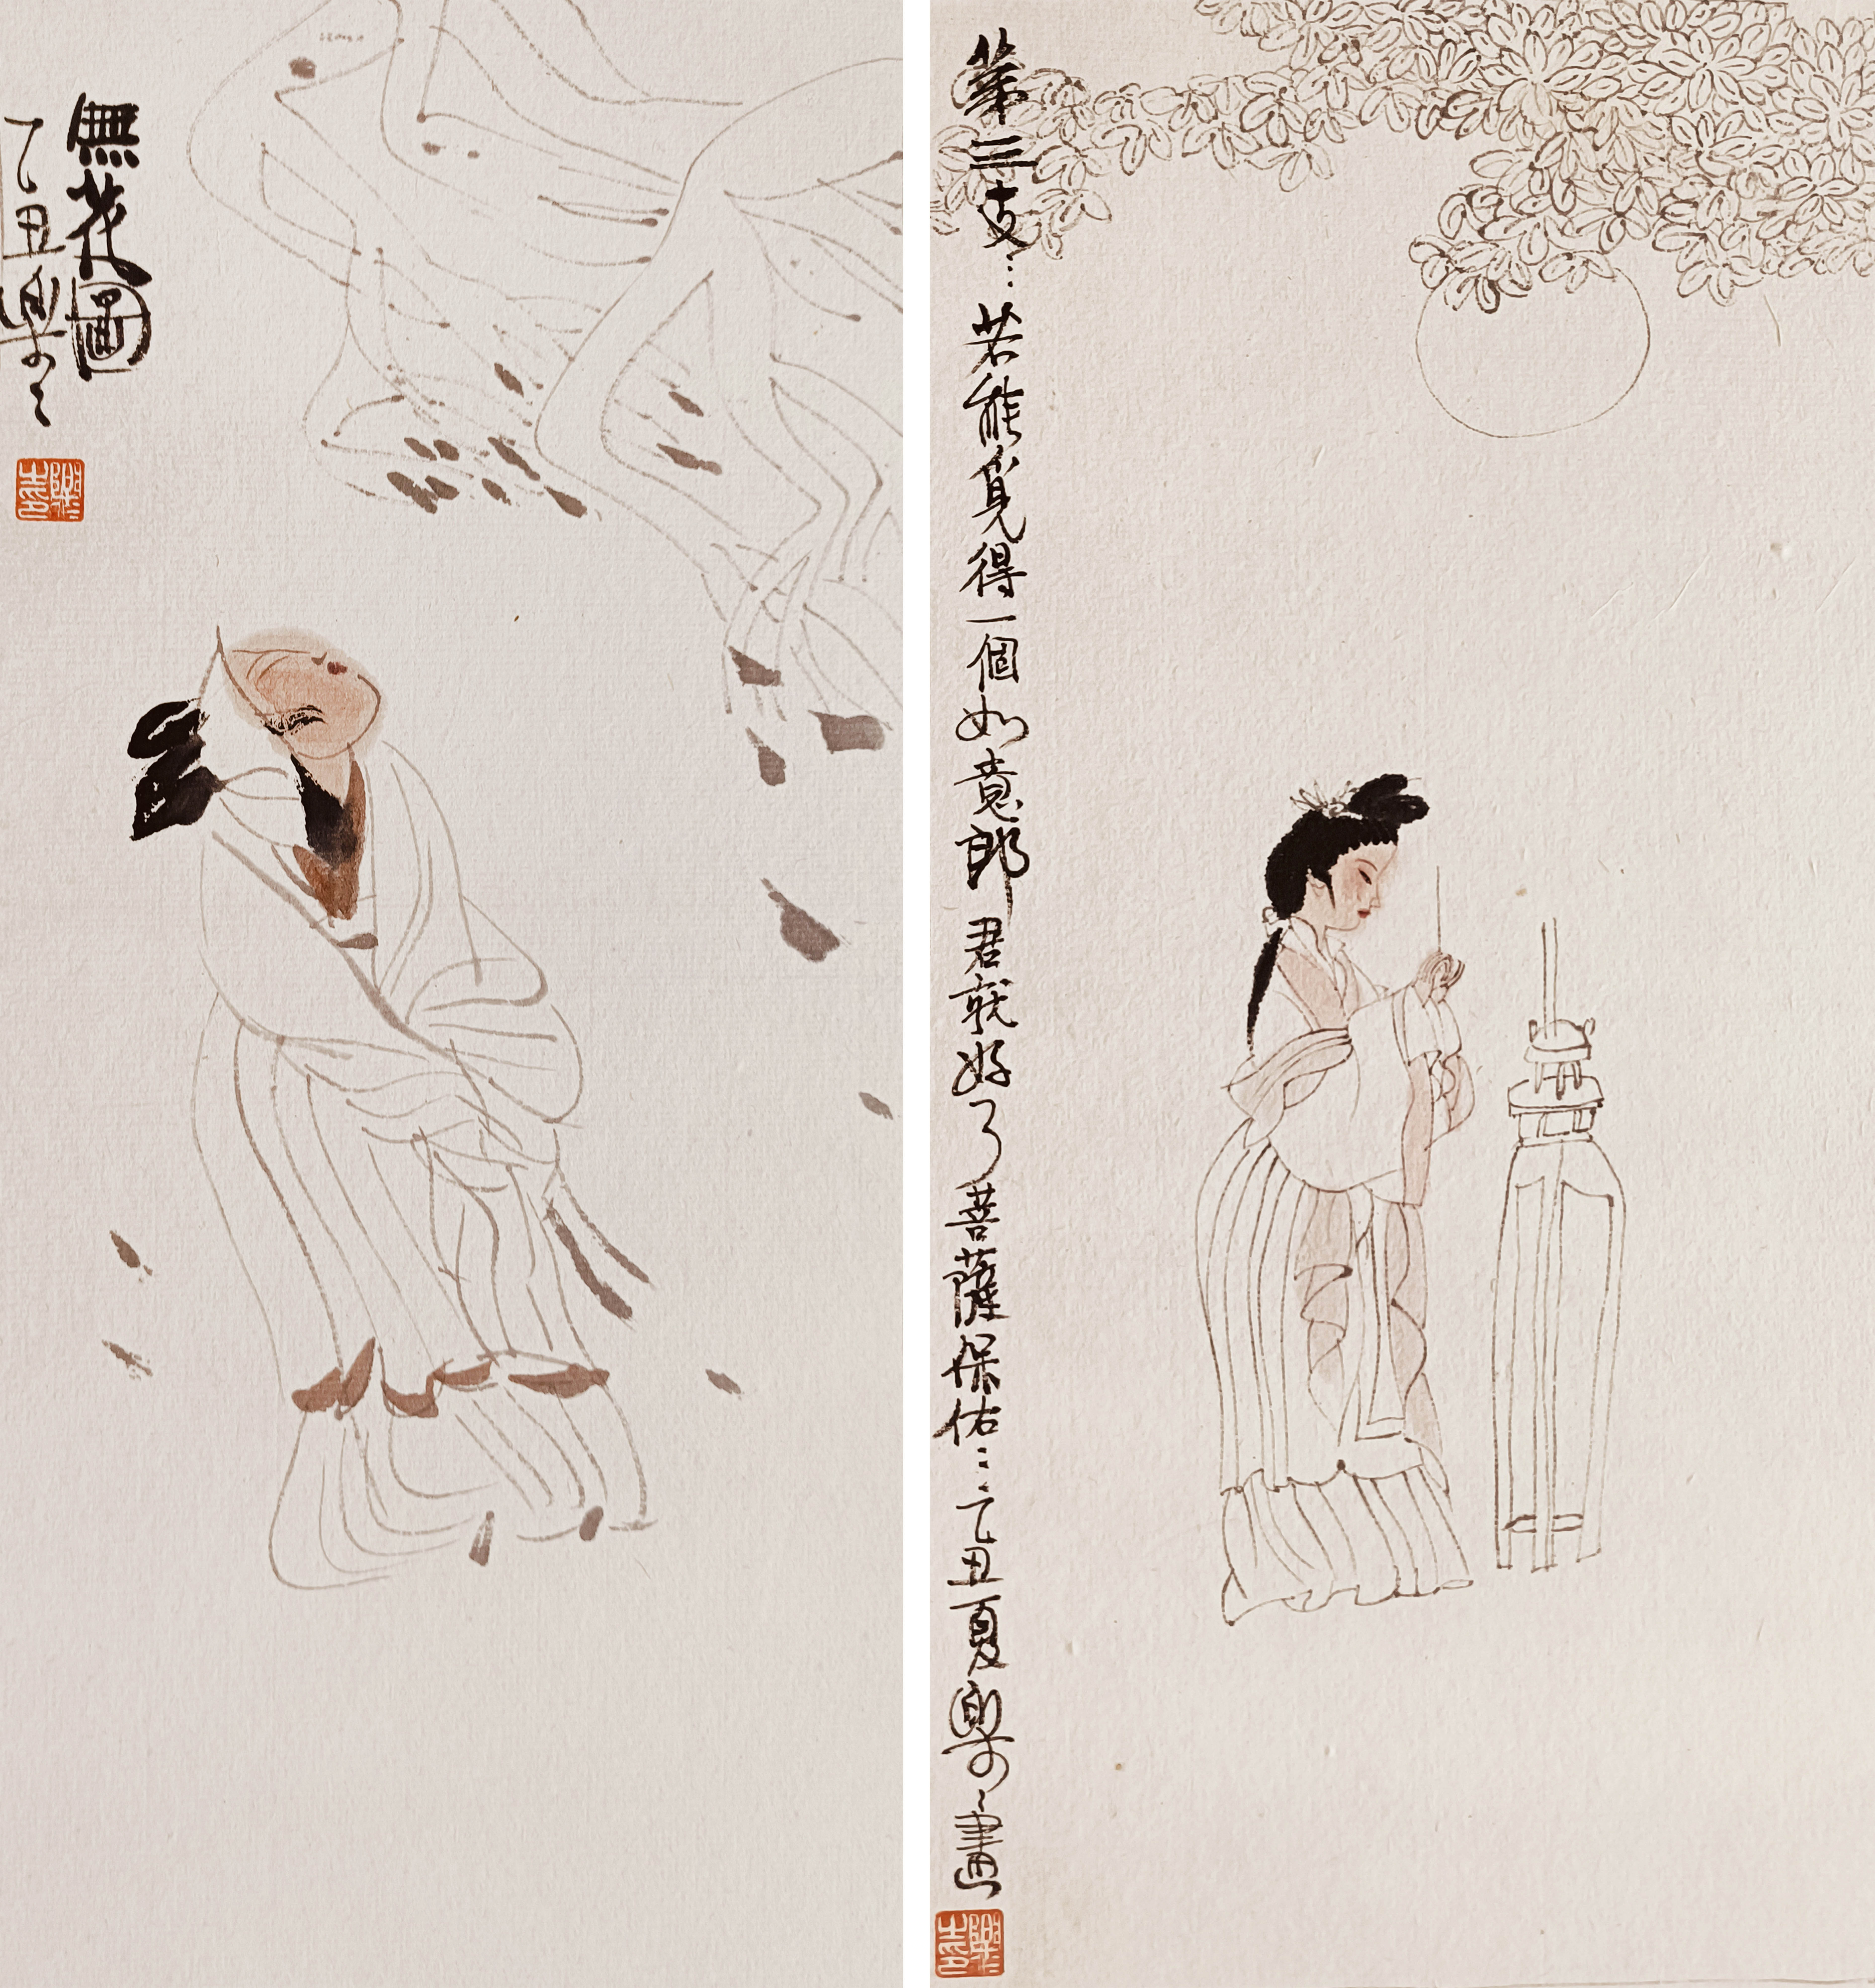 無花圖
乙丑樂〻
第三支…若能覓得一個如意郎君就好了菩薩保佑…乙丑夏樂〻畫